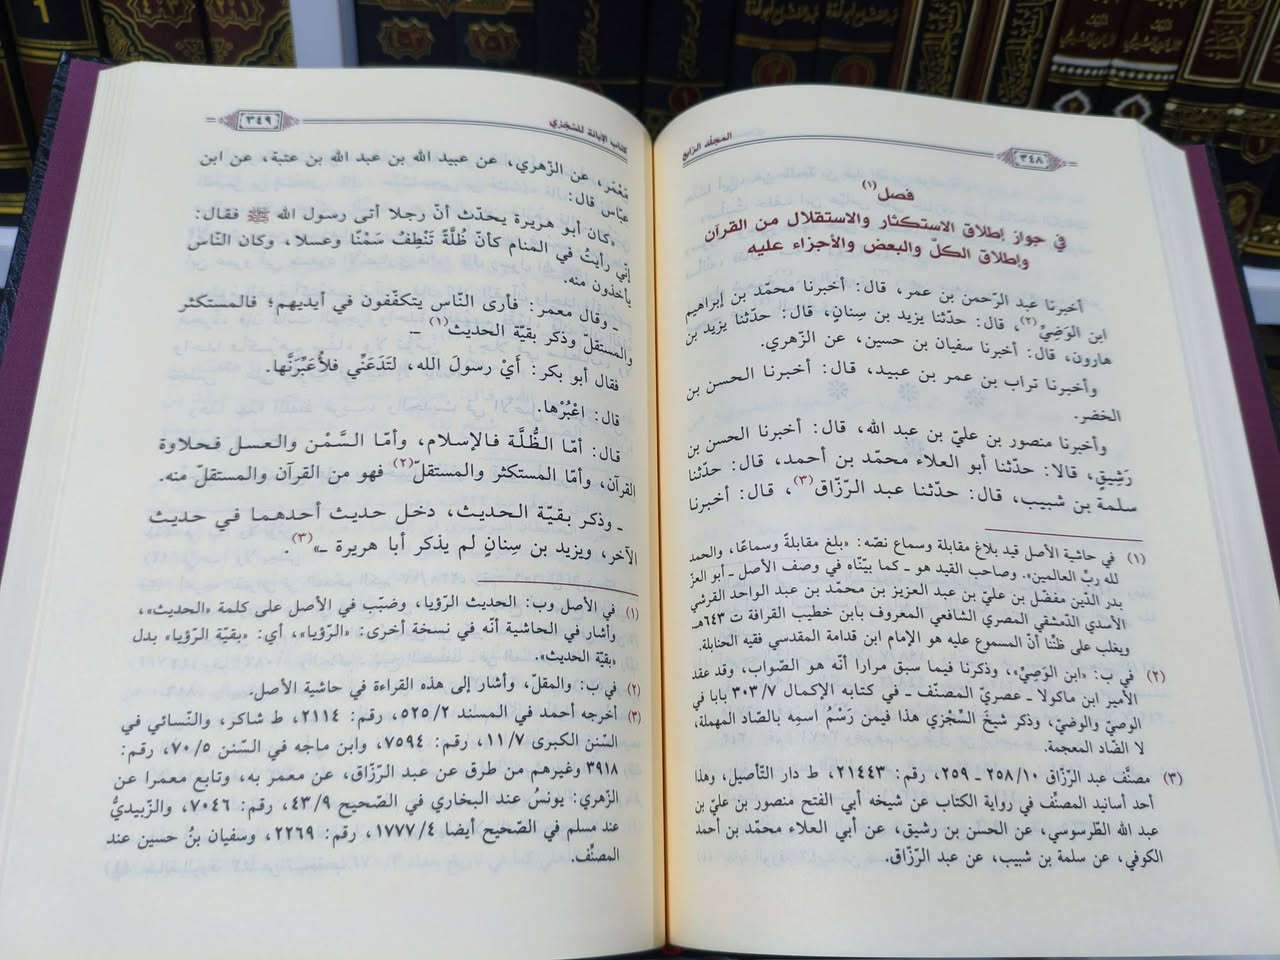 المجلد الرابع
٣٤٨
فصل(١)
في جواز إطلاق الاستكثار والاستقلال من القرآن
وإطلاق الكلّ والبعض والأجزاء عليه
أخبرنا عبد الرّحمن بن عمر، قال: أخبرنا محمّد بن إبراهيم
ابن الوَضِيِّ(٢)، قال: حدّثنا يزيد بن سِنانٍ، قال: حدّثنا يزيد بن
هارون، قال: أخبرنا سفيان بن حسين، عن الزهري.
وأخبرنا تراب بن عمر بن عبيد، قال: أخبرنا الحسن بن
الخضر.
وأخبرنا منصور بن عليّ بن عبد الله، قال: أخبرنا الحسن بن
رَشِيقٍ، قالا: حدّثنا أبو العلاء محمّد بن أحمد، قال: حدّثنا
سلمة بن شبيب، قال: حدّثنا عبد الرّزّاق(٣)، قال: أخبرنا
(١) في حاشية الأصل قيد بلاغ مقابلة وسماع نصّه: «بلغ مقابلةً وسماعًا، والحمد
لله ربّ العالمين». وصاحب القيد هو ـ كما بيّنّاه في وصف الأصل ـ أبو العزّ
بدر الدّين مفضّل بن عليّ بن عبد العزيز بن محمّد بن عبد الواحد القرشي
الأسدي الدّمشقي المصري الشافعي المعروف بابن خطيب القرافة ت ٦٤٣هـ
ويغلب على ظنّنا أنّ المسموع عليه هو الإمام ابن قدامة المقدسي فقيه الحنابلة.
(٢) في ب: «ابن الوَصِيّ»، وذكرنا فيما سبق مرارا أنّه هو الصّواب، وقد عقد
الأمير ابن ماكولا ـ عصريّ المصنّف ـ في كتابه الإكمال ٣٠٣/٧ بابا في
الوصيّ والوضيّ، وذكر شيخَ السِّجْزي هذا فيمن رَسْمُ اسمِه بالصّاد المهملة،
لا الضّاد المعجمة.
(٣) مصنَّف عبد الرّزّاق ٢٥٨/١٠ ـ ٢٥٩، رقم: ٢١٤٤٣، ط دار التّأصيل، وهذا
أحد أسانيد المصنِّف في رواية الكتاب عن شيخه أبي الفتح منصور بن عليّ بن
عبد الله الطّرسوسي، عن الحسن بن رشيق، عن أبي العلاء محمّد بن أحمد
الكوفي، عن سلمة بن شبيب، عن عبد الرّزّاق.
كتاب الإبانة للسّجزي
٣٤٩
مَعْمَر، عن الزّهري، عن عبيد الله بن عبد الله بن عتبة، عن ابن
عبّاس قال:
«كان أبو هريرة يحدّث أنّ رجلا أتى رسول الله ﷺ فقال:
إنّي رأيتُ في المنام كأنّ ظُلَّةً تَنْطِفُ سَمْنًا وعسلا، وكان النّاس
يأخذون منه.
ـ وقال معمر: فأرى النّاس يتكفّفون في أيديهم؛ فالمستكثر
والمستقلّ وذكر بقيّة الحديث(١) ـ
فقال أبو بكر: أَيْ رسولَ الله، لَتَدَعَنِّي فلأُعَبِّرَنَّها.
قال: اعْبُرْها.
قال: أمّا الظُّلَّة فالإسلام، وأمّا السَّمْن والعسل فحلاوة
القرآن، وأمّا المستكثر والمستقلّ(٢) فهو من القرآن والمستقلّ منه.
ـ وذكر بقيّة الحديث، دخل حديث أحدهما في حديث
الآخر، ويزيد بن سِنانٍ لم يذكر أبا هريرة ـ»(٣).
(١) في الأصل وب: الحديث الرّؤيا، وضبّب في الأصل على كلمة «الحديث»،
وأشار في الحاشية أنّه في نسخة أخرى: «الرّؤيا»، أي: «بقيّة الرّؤيا» بدل
«بقيّة الحديث».
(٢) في ب: والمقلّ، وأشار إلى هذه القراءة في حاشية الأصل.
(٣) أخرجه أحمد في المسند ٥٢٥/٢، رقم: ٢١١٤، ط شاكر، والنّسائي في
السّنن الكبرى ١١/٧، رقم: ٧٥٩٤، وابن ماجه في السّنن ٧٠/٥، رقم:
٣٩١٨ وغيرهم من طرق عن عبد الرّزّاق، عن معمر به، وتابع معمرا عن
الزّهري: يونسُ عند البخاري في الصّحيح ٤٣/٩، رقم: ٧٠٤٦، والزّبيديُّ
عند مسلم في الصّحيح أيضا ١٧٧٧/٤، رقم: ٢٢٦٩، وسفيان بنُ حسين عند
المصنِّف.